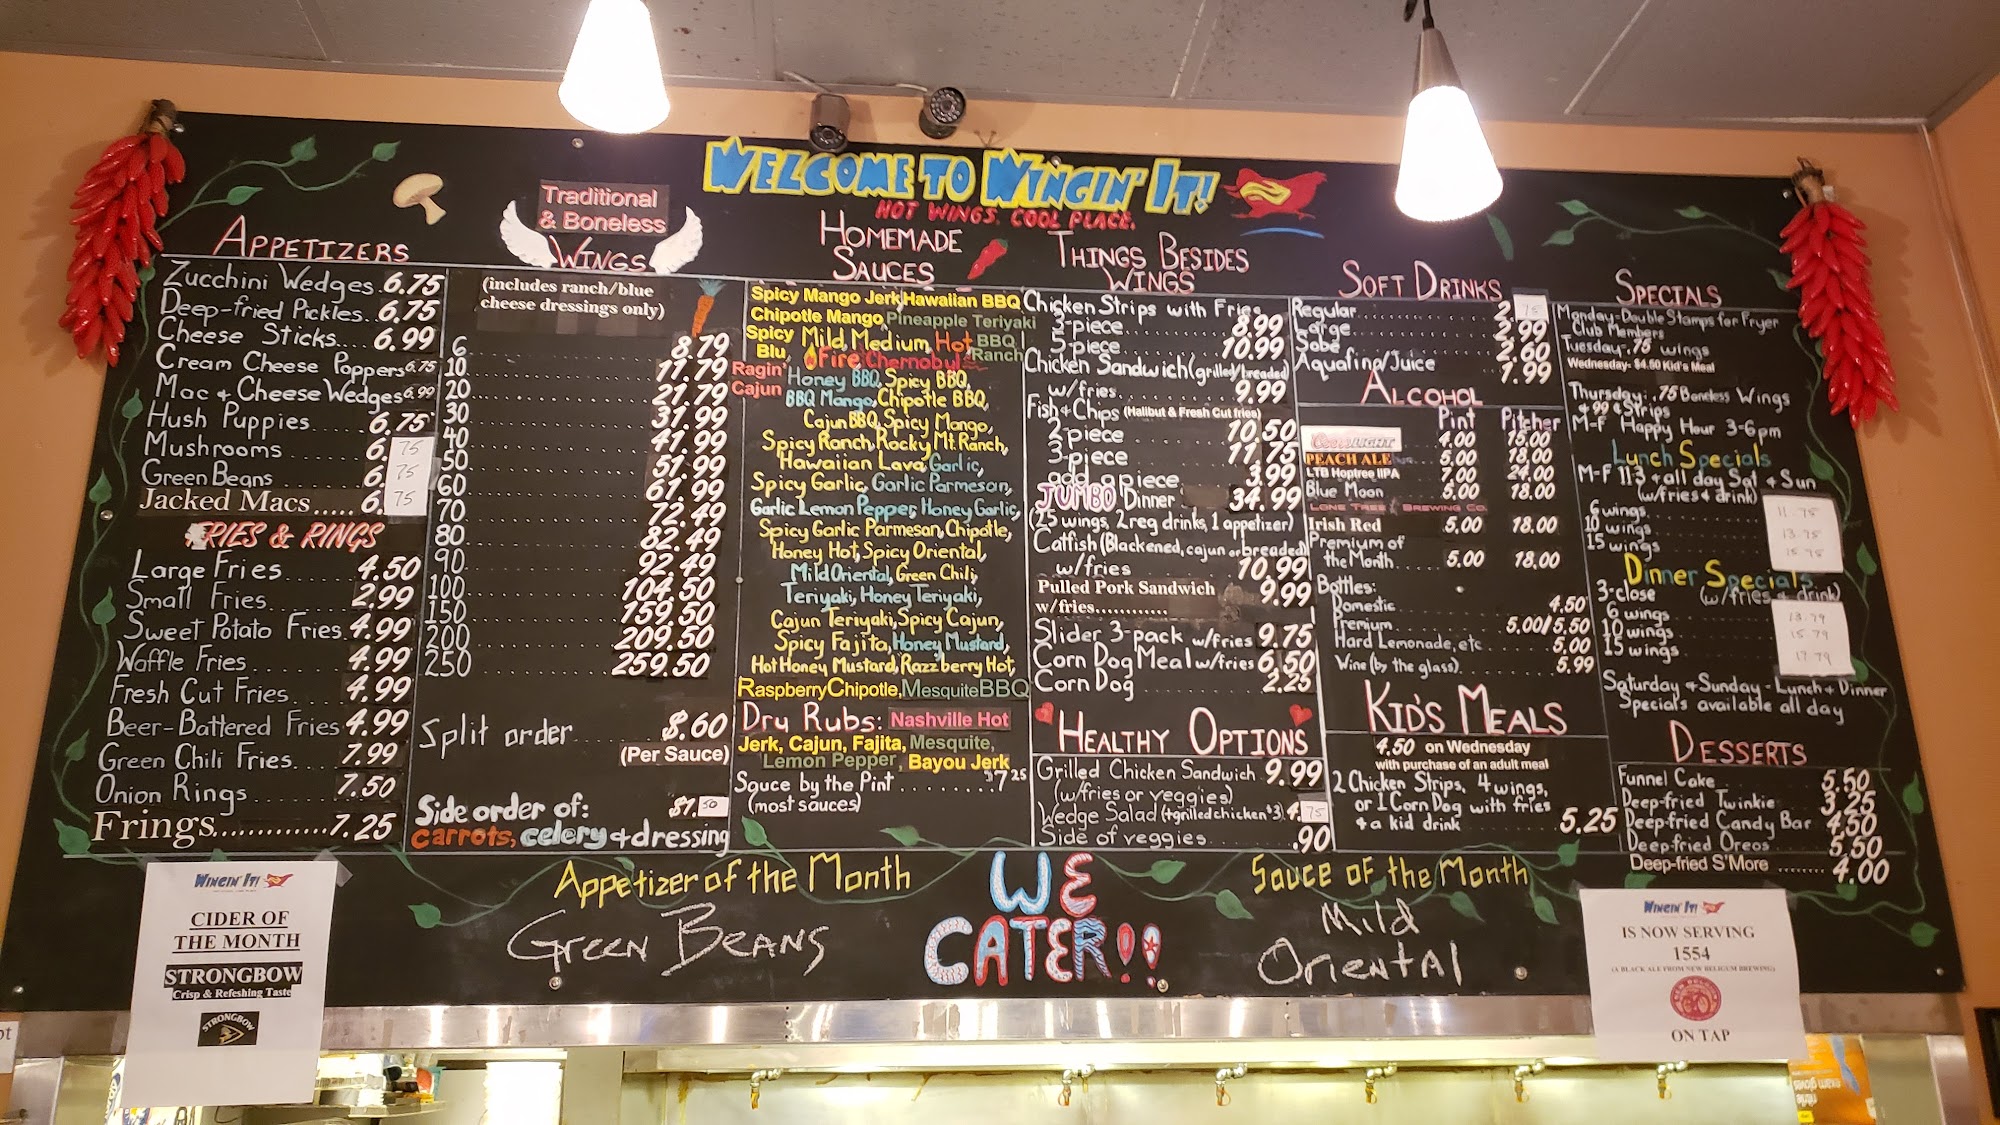 WELCOME TO WINGIN' IT!
HOT WINGS. COOL PLACE.
APPETIZERS
Zucchini Wedges. 6.75
Deep-fried Pickles.. 6.75
Cheese Sticks.... 6.99
Cream Cheese Poppers 6.75
Mac & Cheese Wedges 6.99
Hush Puppies 6.75
Mushrooms 6.75
Green Beans 6.75
Jacked Macs..... 6.75
FRIES & RINGS
Large Fries 4.50
Small Fries 2.99
Sweet Potato Fries. 4.99
Waffle Fries 4.99
Fresh Cut Fries 4.99
Beer-Battered Fries 4.99
Green Chili Fries 7.99
Onion Rings 7.50
Frings............. 7.25
Traditional
& Boneless
WINGS
(includes ranch/blue
cheese dressings only)
6 8.79
10 11.79
20 21.79
30 31.99
40 41.99
50 51.99
60 61.99
70 72.49
80 82.49
90 92.49
100 104.50
150 159.50
200 209.50
250 259.50
Split order $.60
(Per Sauce)
Side order of: $1.50
carrots, celery & dressing
HOMEMADE
SAUCES
Spicy Mango Jerk Hawaiian BBQ
Chipotle Mango Pineapple Teriyaki
Spicy Blu Mild, Medium, Hot BBQ Ranch
Fire Chernobyl
Ragin' Cajun Honey BBQ, Spicy BBQ,
BBQ Mango, Chipotle BBQ,
Cajun BBQ, Spicy Mango,
Spicy Ranch, Rocky Mt. Ranch,
Hawaiian Lava, Garlic,
Spicy Garlic, Garlic Parmesan,
Garlic Lemon Pepper, Honey Garlic,
Spicy Garlic Parmesan, Chipotle,
Honey Hot, Spicy Oriental,
Mild Oriental, Green Chili,
Teriyaki, Honey Teriyaki,
Cajun Teriyaki, Spicy Cajun,
Spicy Fajita, Honey Mustard,
Hot Honey Mustard, Razzberry Hot,
Raspberry Chipotle, Mesquite BBQ
Dry Rubs: Nashville Hot
Jerk, Cajun, Fajita, Mesquite,
Lemon Pepper, Bayou Jerk
Sauce by the Pint ........ $7.25
(most sauces)
THINGS BESIDES
WINGS
Chicken Strips with Fries
3-piece 8.99
5-piece 10.99
Chicken Sandwich (grilled/breaded)
w/fries 9.99
Fish & Chips (Halibut & Fresh Cut fries)
2-piece 10.50
3-piece 11.75
add a piece 3.99
JUMBO Dinner 34.99
(25 wings, 2 reg drinks, 1 appetizer)
Catfish (Blackened, cajun or breaded)
w/fries 10.99
Pulled Pork Sandwich
w/fries............ 9.99
Slider 3-pack w/fries 9.75
Corn Dog Meal w/fries 6.50
Corn Dog 2.25
HEALTHY OPTIONS
Grilled Chicken Sandwich 9.99
(w/fries or veggies)
Wedge Salad (+grilled chicken $3) 4.75
Side of veggies .90
SOFT DRINKS
Regular 2.75
Large 2.99
Sobe 2.60
Aquafina/Juice 1.99
ALCOHOL
Pint Pitcher
Coors LIGHT 4.00 15.00
PEACH ALE 5.00 18.00
LTB Hoptree IIPA 7.00 24.00
Blue Moon 5.00 18.00
LONE TREE BREWING CO.
Irish Red 5.00 18.00
Premium of
the Month 5.00 18.00
Bottles:
Domestic 4.50
Premium 5.00/5.50
Hard Lemonade, etc 5.00
Wine (by the glass) 5.99
KID'S MEALS
4.50 on Wednesday
with purchase of an adult meal
2 Chicken Strips, 4 wings,
or 1 Corn Dog with fries
& a kid drink 5.25
SPECIALS
Monday-Double Stamps for Fryer
Club Members
Tuesday-.75 wings
Wednesday- $4.50 Kid's Meal
Thursday: .75 Boneless Wings
& 99¢ Strips
M-F Happy Hour 3-6pm
Lunch Specials
M-F 11-3 & all day Sat & Sun
(w/fries & drink)
6 wings 11.75
10 wings 13.75
15 wings 15.95
Dinner Specials
3-close (w/fries & drink)
6 wings 13.79
10 wings 15.79
15 wings 17.79
Saturday & Sunday - Lunch & Dinner
Specials available all day
DESSERTS
Funnel Cake 5.50
Deep-fried Twinkie 3.25
Deep-fried Candy Bar 4.50
Deep-fried Oreos 5.50
Deep-fried S'More ........ 4.00
Appetizer of the Month
Green Beans
WE
CATER!!
Sauce of the Month
Mild
Oriental
WINGIN' IT!
CIDER OF
THE MONTH
STRONGBOW
Crisp & Refeshing Taste
STRONGBOW
WINGIN' IT!
IS NOW SERVING
1554
(A BLACK ALE FROM NEW BELIGUM BREWING)
ON TAP